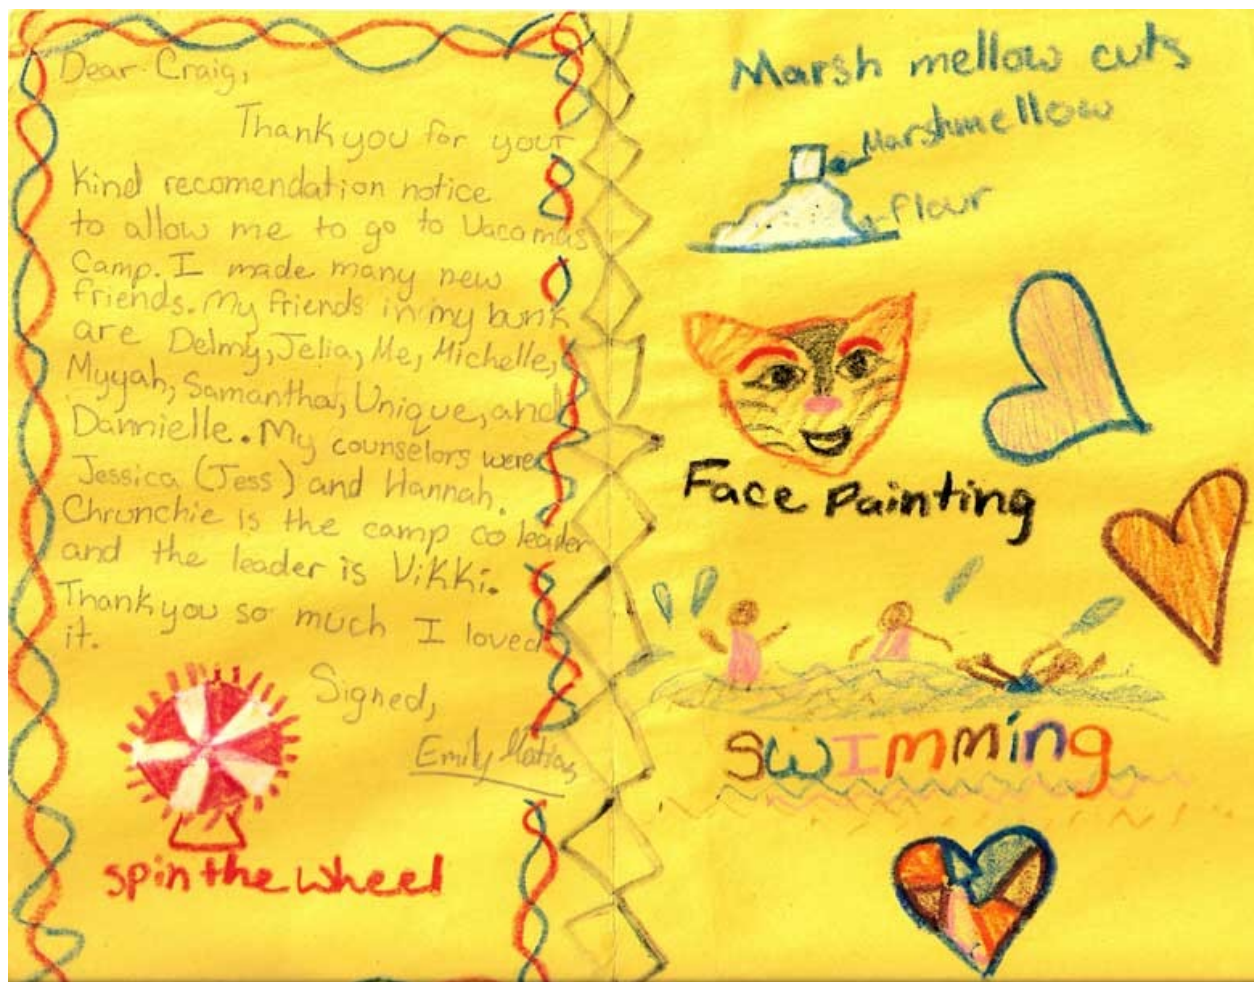 Dear Craig,
Thank you for your
Kind recomendation notice
to allow me to go to Vacamas
Camp. I made many new
friends. My friends in my bunk
are Delmy, Jelia, Me, Michelle,
Myyah, Samantha, Unique, and
Dannielle. My counselors were
Jessica (Jess) and Hannah.
Chrunchie is the camp co leader
and the leader is Vikki.
Thank you so much I loved
it.
Signed,
Emily
spin the wheel
Marsh mellow cuts
Marshmellow
flour
Face Painting
SwImming